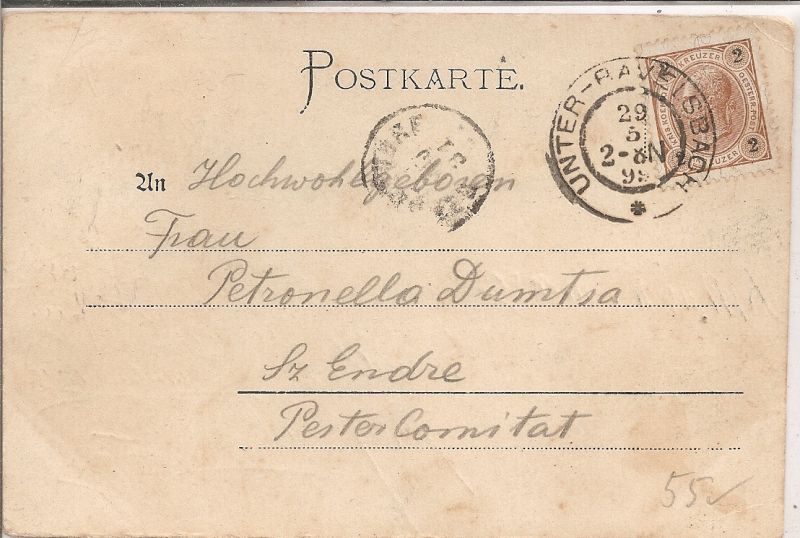 POSTKARTE.
2 KREUZER OESTERR. POST 2 KREUZER
UNTER-RAVELSBACH
29
5
2-8N
99
An Hochwohlgeboren
Frau
Petronella Dumtsa
Sz Endre
Pester Comitat
55